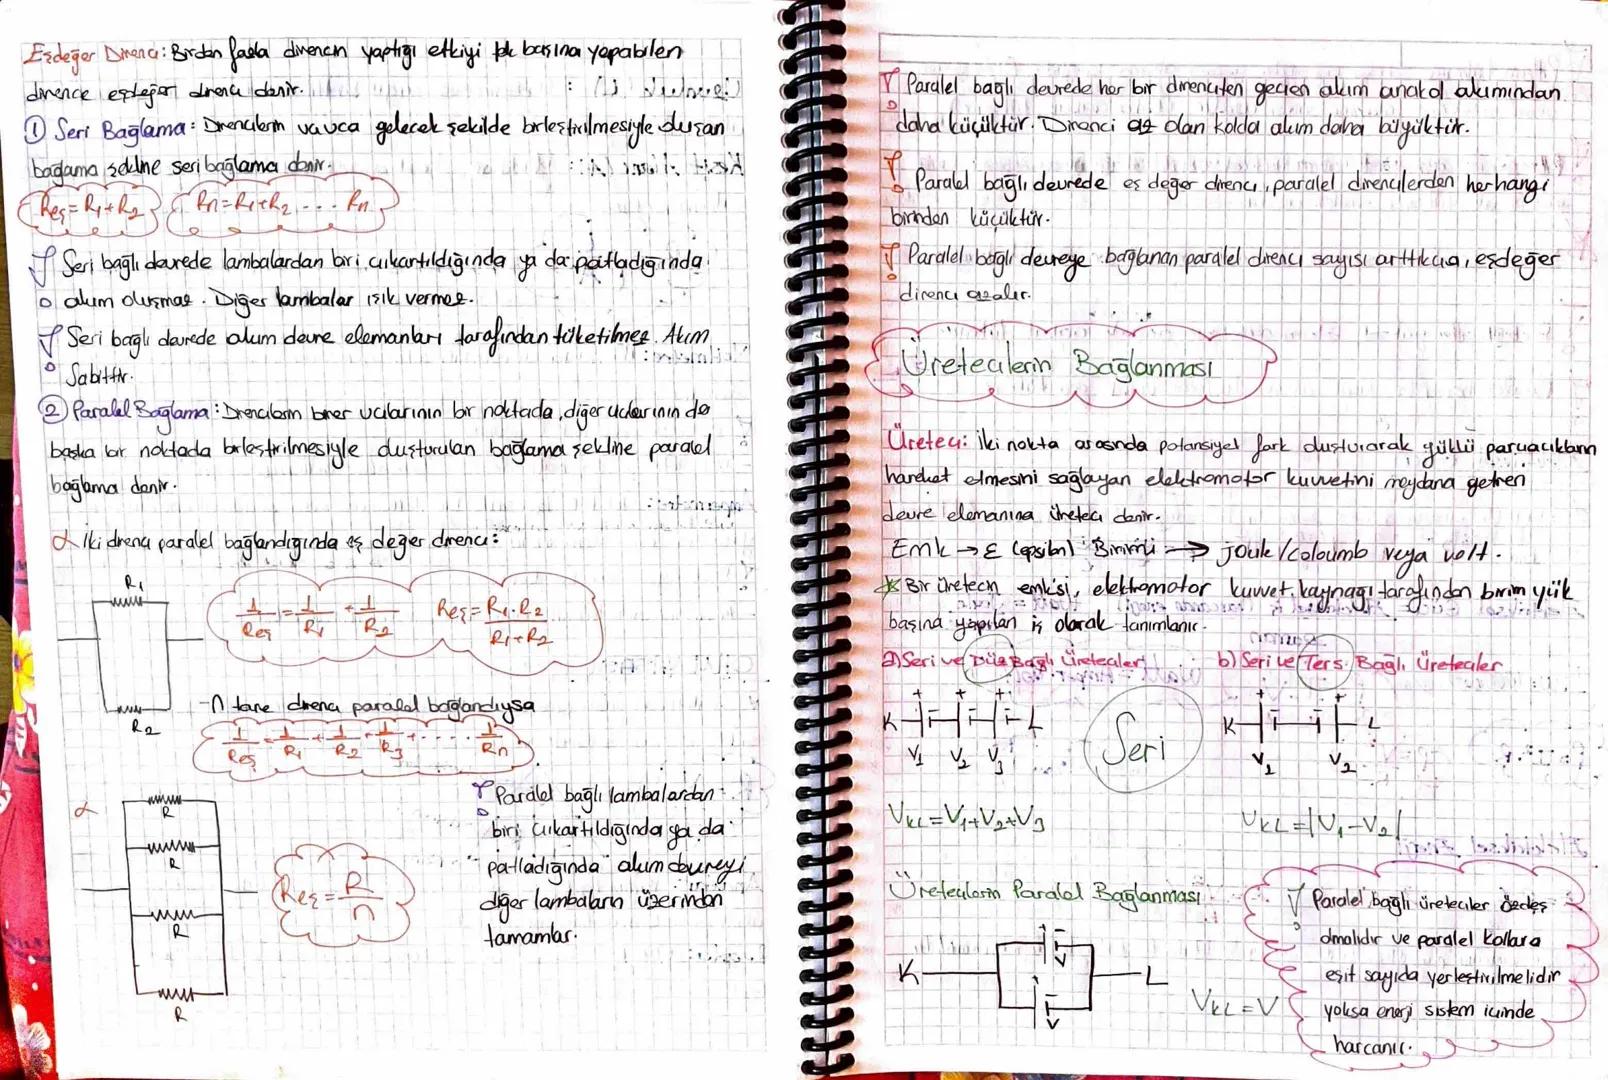 Eşdeğer Direnç: Birden fazla direncin yaptığı etkiyi tek başına yapabilen
dirence eşdeğer direnç denir.
① Seri Bağlama: Dirençlerin uç uca gelecek şekilde birleştirilmesiyle oluşan
bağlama şekline seri bağlama denir.
Reş = R1 + R2
Rn = R1 + R2 ... Rn
! Seri bağlı devrede lambalardan biri çıkartıldığında ya da patladığında
akım oluşmaz. Diğer lambalar ışık vermez.
! Seri bağlı devrede akım devre elemanları tarafından tüketilmez. Akım
Sabittir.
② Paralel Bağlama: Dirençlerin birer uçlarının bir noktada, diğer uçlarının da
başka bir noktada birleştirilmesiyle oluşturulan bağlama şekline paralel
bağlama denir.
α İki direnç paralel bağlandığında eş değer direnç:
R1
R2
1/Reş = 1/R1 + 1/R2
Reş = R1.R2/R1+R2
-n tane direnç paralel bağlandıysa
1/Reş = 1/R1 + 1/R2 + 1/R3 + .... 1/Rn
α
R
R
R
R
Reş = R/n
! Paralel bağlı lambalardan
biri çıkartıldığında ya da
patladığında akım devreyi
diğer lambaların üzerinden
tamamlar.
! Paralel bağlı devrede her bir dirençten geçen akım anakol akımından
daha küçüktür. Direnci az olan kolda akım daha büyüktür.
! Paralel bağlı devrede eş değer direnç, paralel dirençlerden herhangi
birinden küçüktür.
! Paralel bağlı devreye bağlanan paralel direnç sayısı arttıkça, eşdeğer
direnç azalır.
Üreteçlerin Bağlanması
Üreteç: İki nokta arasında potansiyel fark oluşturarak yüklü parçacıkların
hareket etmesini sağlayan elektromotor kuvvetini meydana getiren
devre elemanına üreteç denir.
Emk → ε (epsilon) Birimi → joule/coloumb veya volt.
* Bir üretecin emk'sı, elektromotor kuvvet kaynağı tarafından birim yük
başına yapılan iş olarak tanımlanır.
a) Seri ve Düz Bağlı Üreteçler
b) Seri ve Ters Bağlı Üreteçler
K + - + - + - L
V1 V2 V3
Seri
K + - - + L
V1 V2
VKL = V1 + V2 + V3
VKL = |V1 - V2|
Üreteçlerin Paralel Bağlanması
K + - V L
+ - V
VKL = V
! Paralel bağlı üreteçler özdeş
olmalıdır ve paralel kollara
eşit sayıda yerleştirilmelidir
yoksa enerji sistem içinde
harcanır.